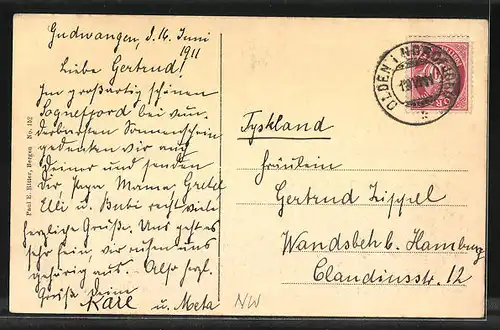 Gudwangen, d. 16. Juni
1911
Liebe Gertrud!
Im großartig schönen
Sognefjord bei wun-
derbarsten Sonnenschein
gedenken wir auf
Deiner und senden
Dir Papa Mama Gretel
Elli u. Bubi recht viele
herzliche Grüße. Uns geht es
sehr fein, wir reisen uns
gehörig aus. Also herzl.
Grüße Deine
Käre u. Meta
NW
Paul E. Ritter, Bergen No. 152
OLDEN I NORDFJORD
19 VI 11
10
Tyskland
Fräulein
Gertrud Zippel
Wandsbek b. Hamburg
Claudiusstr. 12